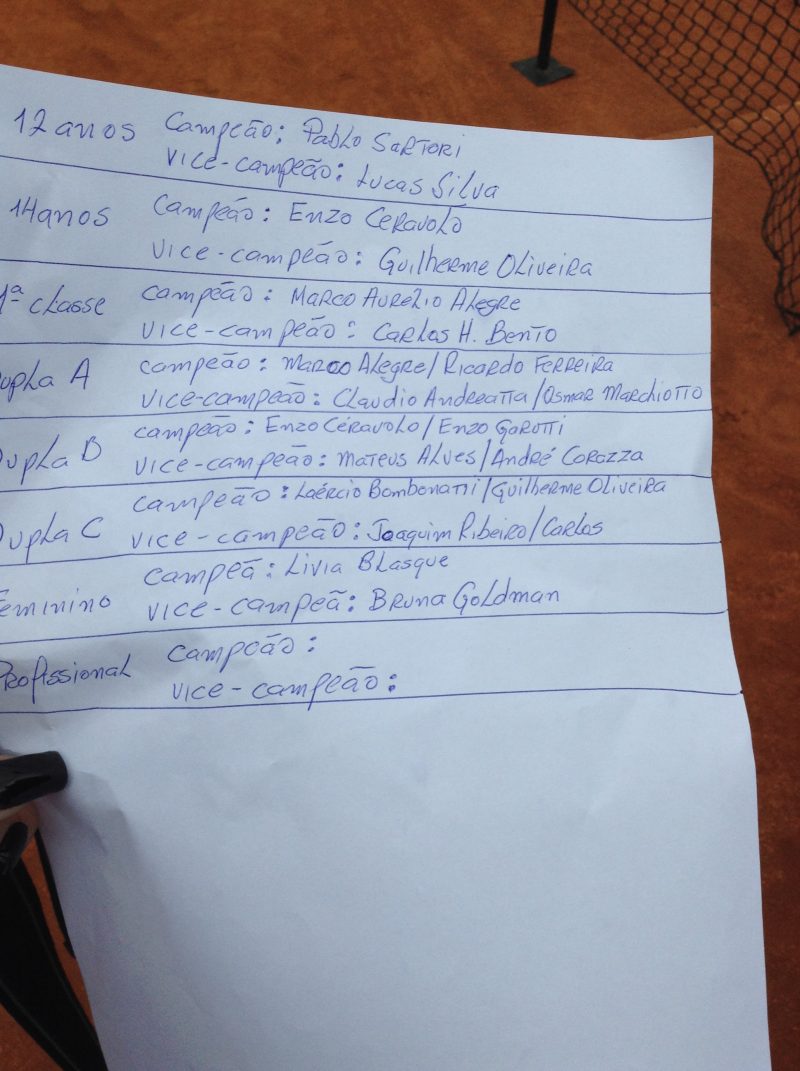 12 anos Campeão: Pablo Sartori
Vice-campeão: Lucas Silva
14 anos Campeão: Enzo Ceravolo
Vice-campeão: Guilherme Oliveira
1ª classe campeão: Marco Aurelio Alegre
Vice-campeão: Carlos H. Bento
Dupla A campeão: Marco Alegre/Ricardo Ferreira
Vice-campeão: Claudio Andreatta/Osmar Marchiotto
Dupla B campeão: Enzo Céravolo/Enzo Garutti
Vice-campeão: Mateus Alves/André Corazza
Dupla C campeão: Laércio Bombonatti/Guilherme Oliveira
Vice-campeão: Joaquim Ribeiro/Carlos
Feminino campeã: Livia Blasque
Vice-campeã: Bruna Goldman
Profissional campeão:
Vice-campeão: